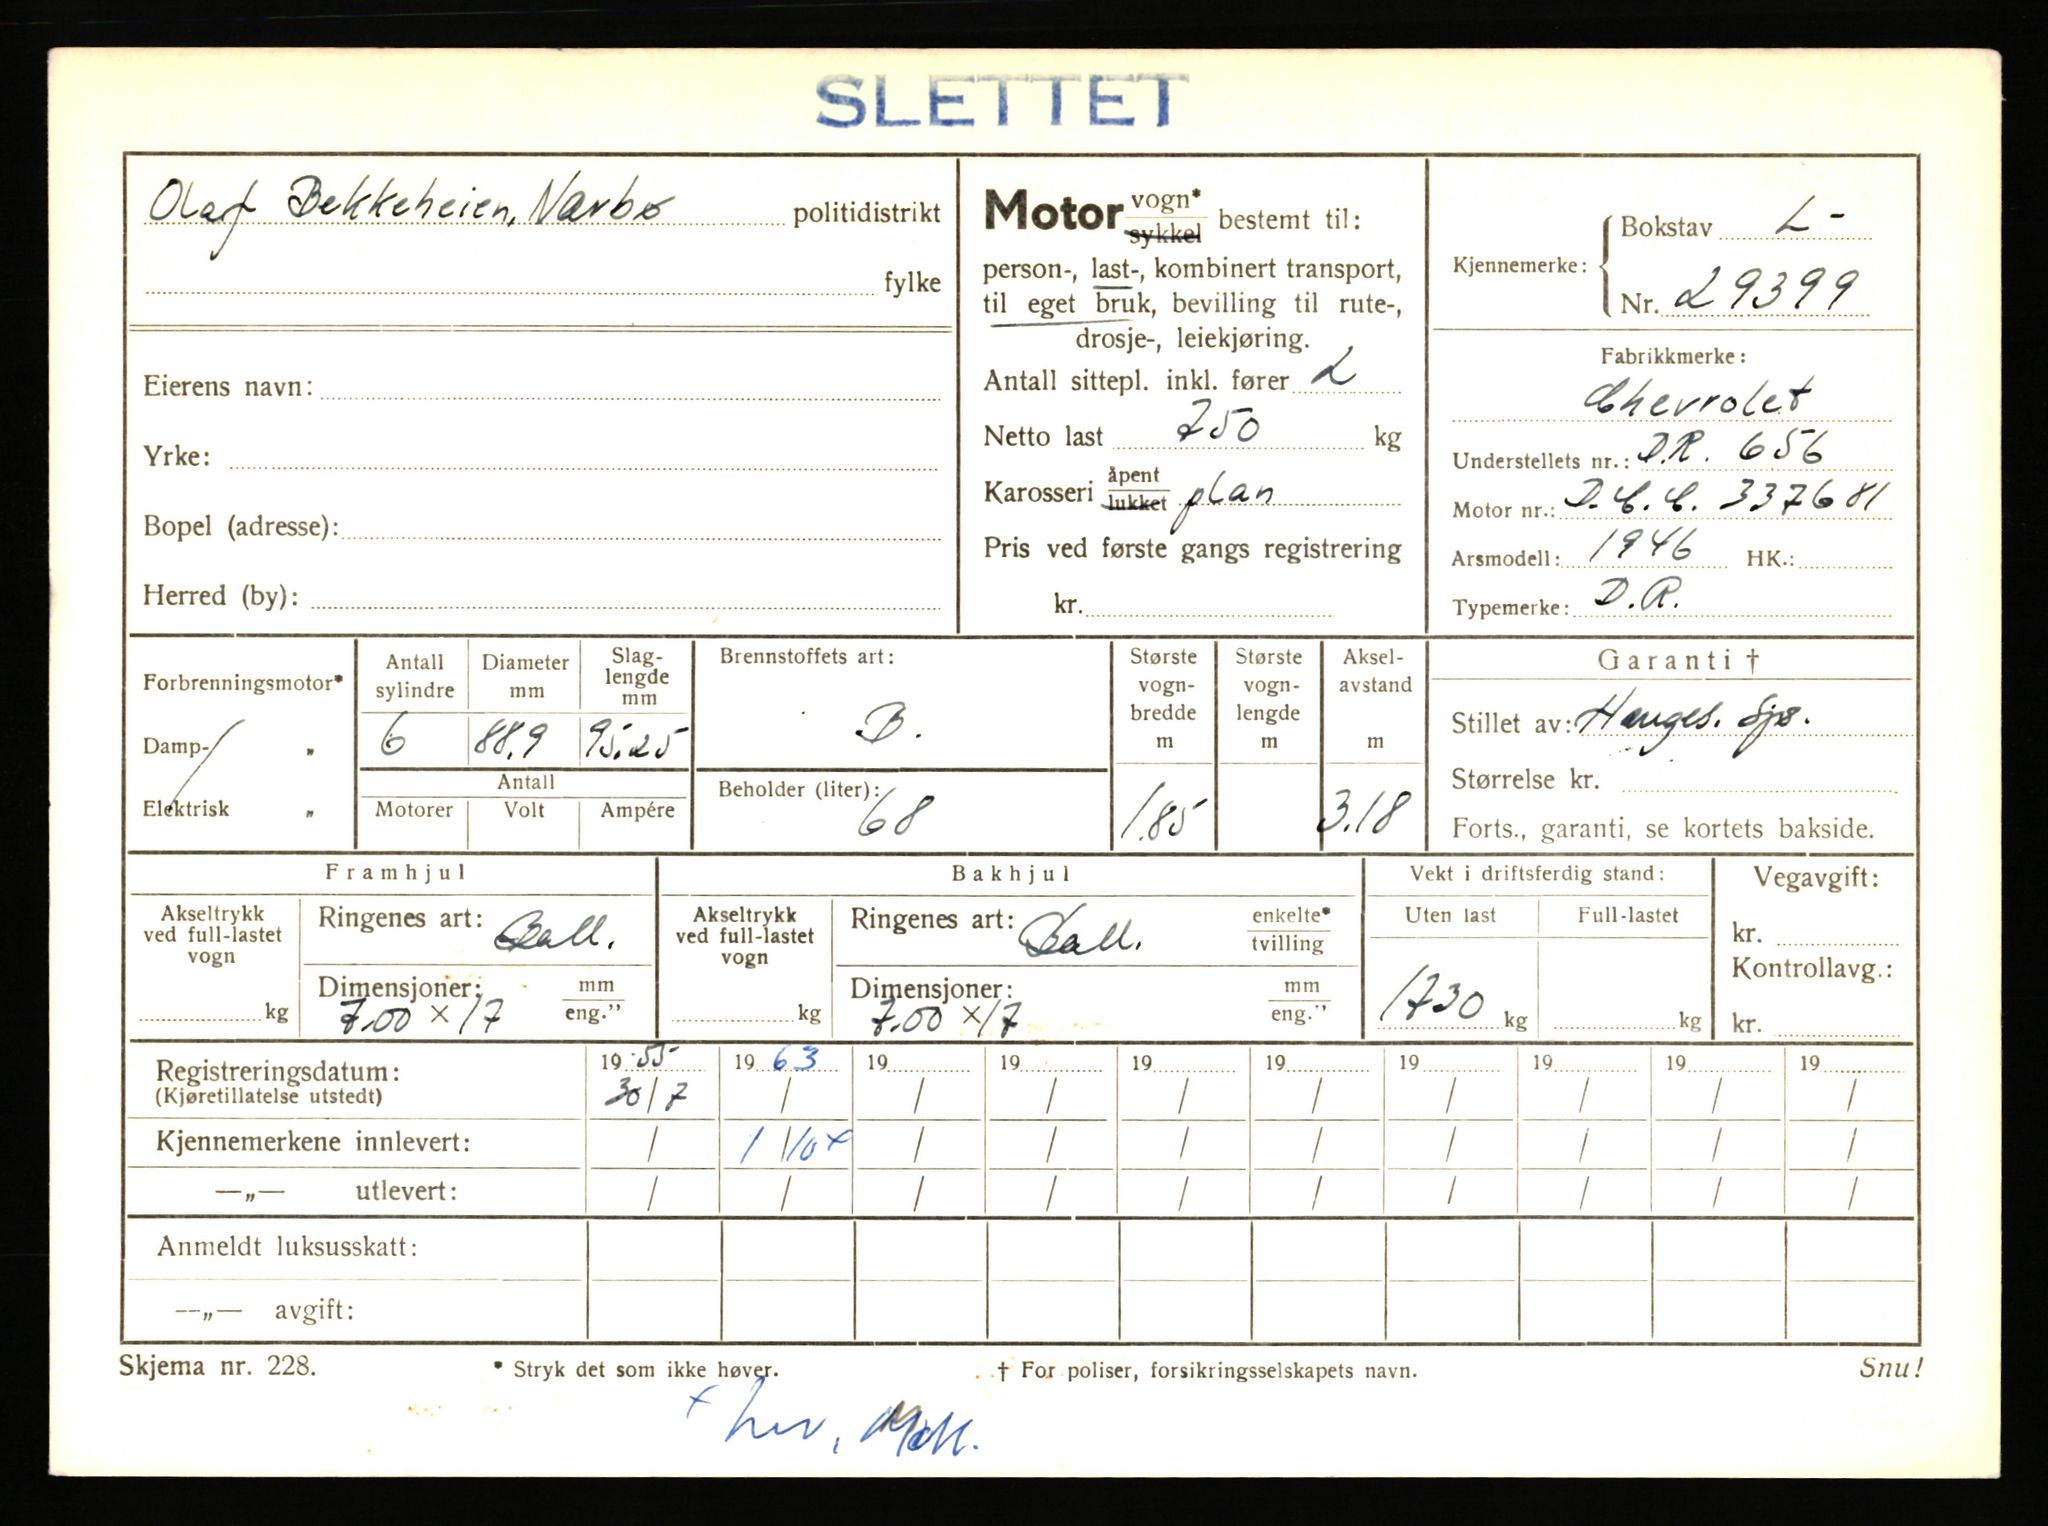 SLETTET
Olaf Bekkeheien, Nærbø politidistrikt
fylke
Eierens navn:
Yrke:
Bopel (adresse):
Herred (by):
Motor vogn*
sykkel bestemt til:
person-, last-, kombinert transport,
til eget bruk, bevilling til rute-,
drosje-, leiekjøring.
Antall sittepl. inkl. fører 2
Netto last 750 kg
Karosseri åpent
lukket plan
Pris ved første gangs registrering
kr.
Kjennemerke: Bokstav L-
Nr. 29399
Fabrikkmerke:
Chevrolet
Understellets nr.: D.R. 656
Motor nr.: D.C.C. 337681
Arsmodell: 1946 HK.:
Typemerke: D.R.
Forbrenningsmotor*
Damp- „
Elektrisk „
Antall sylindre Diameter mm Slaglengde mm
6 88,9 95,25
Antall
Motorer Volt Ampére
Brennstoffets art:
B.
Beholder (liter):
68
Største vogn-bredde m Største vogn-lengde m Aksel-avstand m
1.85 3.18
Garanti †
Stillet av: Hauges. Sjø.
Størrelse kr.
Forts., garanti, se kortets bakside.
Framhjul
Akseltrykk ved full-lastet vogn
kg
Ringenes art: Ball.
Dimensjoner: mm
eng."
7.00 × 17
Bakhjul
Akseltrykk ved full-lastet vogn
kg
Ringenes art: Ball. enkelte*
tvilling
Dimensjoner: mm
eng."
7.00 × 17
Vekt i driftsferdig stand:
Uten last Full-lastet
1730 kg kg
Vegavgift:
kr.
Kontrollavg.:
kr.
Registreringsdatum: 19 55 19 63 19 19 19 19 19 19 19 19
(Kjøretillatelse utstedt) 30/7 / / / / / / / / /
Kjennemerkene innlevert: / 1/10 + / / / / / / / /
—„— utlevert: / / / / / / / / / /
Anmeldt luksusskatt:
—„— avgift:
Skjema nr. 228. * Stryk det som ikke høver. † For poliser, forsikringsselskapets navn. Snu!